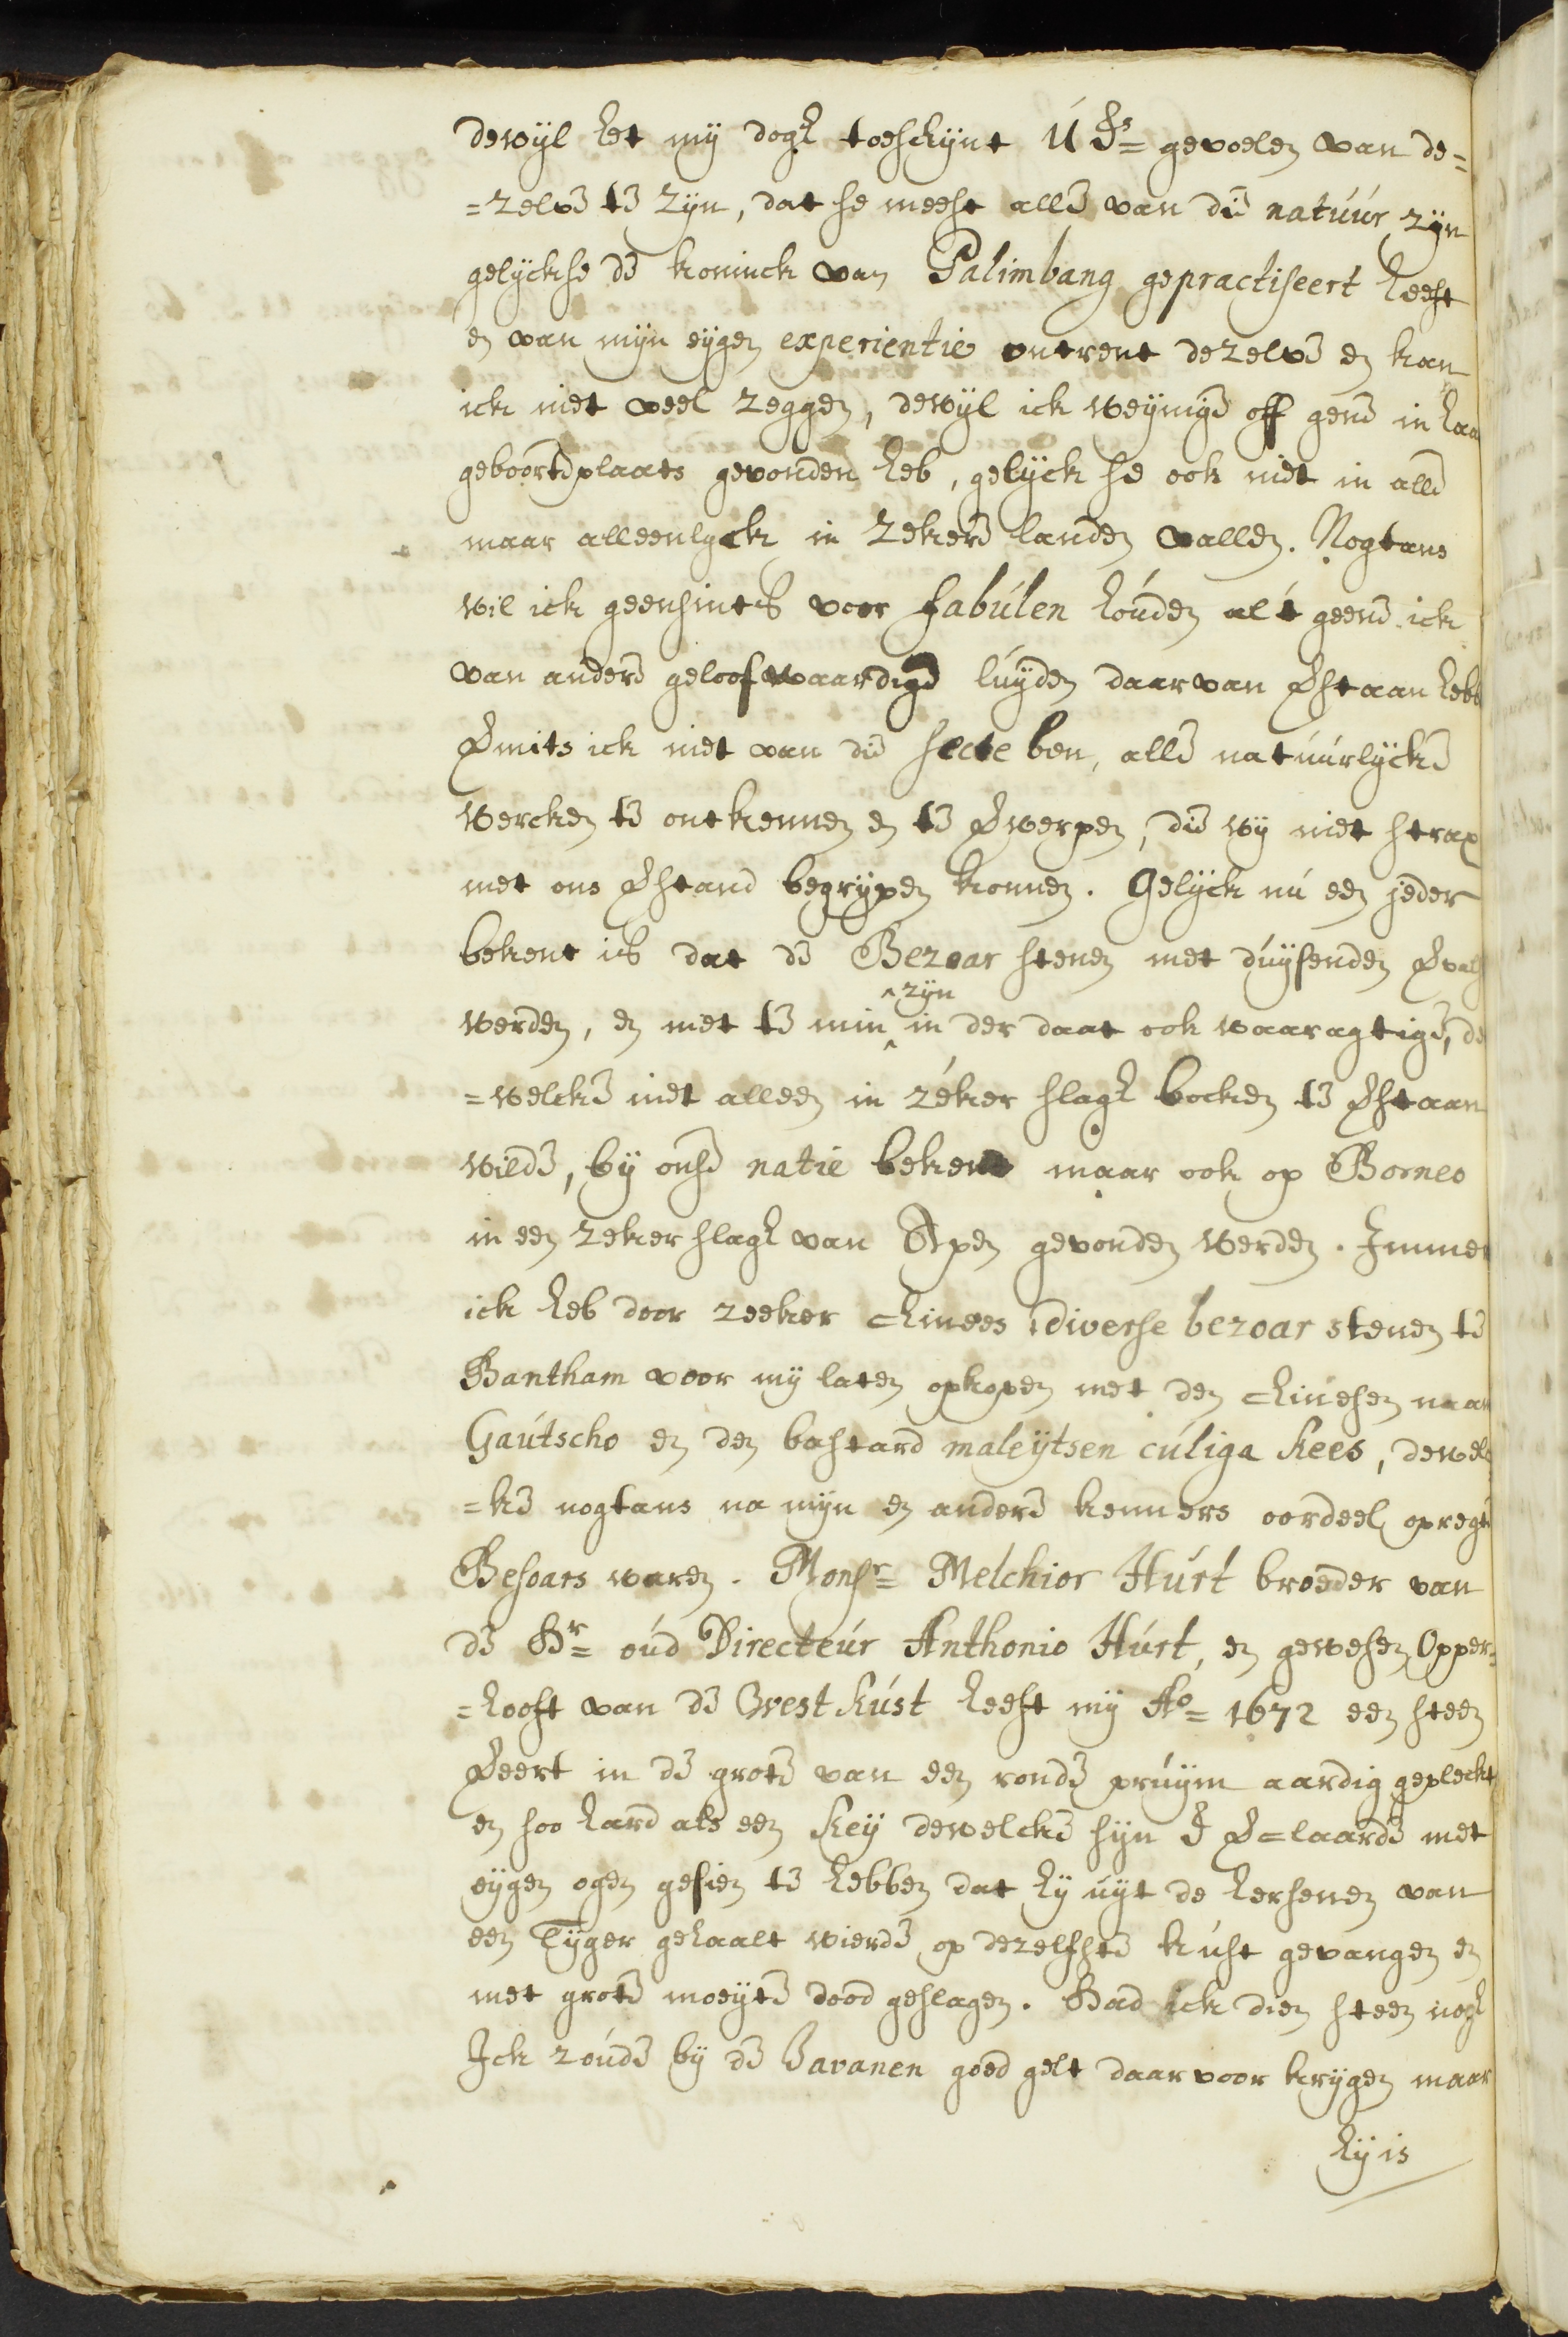 dewÿl het mÿ dogh toeschÿnt U Es= gevoelen van de=
=zelve te zÿn, dat se meest alle van die natúúr zÿn
gelÿckse de koninck van Palimbang gepractiseert heeft
en van mÿn eÿgen experientie ontrent dezelve en kan
ick niet veel zeggen, dewÿl ick weÿnige off gene in haa
geboorteplaats gevonden heb, gelÿck se ook niet in alle
maar alleenlyck in zekere landen vallen. Nogtans
wil ick geensints voor fabúlen hoúden al 't geene ick
van andere geloofwaardige lúÿden daar van verstaan heb
vermits ick niet van die secte ben, alle natúúrlÿcke
wercken te ontkennen en te verwerpen, die wÿ niet strax
met ons verstand begrÿpen konnen. Gelÿck nú een jeder
bekent is dat de Bezoar stenen met dúÿsenden vervals
werden, en niet te min ^zÿn in der daat ook waaragtige, de
=welcke niet alleen in zéker slagh bocken te verstaan
wilde, bÿ onse natie bekent maar ook op Borneo
in een zeker slagh van Apen gevonden werden. Immer
ick heb door zeeker chinees diverse bezoar stenen te
Bantham voor mÿ laten opkopen met den chinesen naam
Gaútscho en den bastard maleÿtsen cúliga kees, dewel
=ke nogtans na mÿn en andere kenners oordeel opregte
Besoars waren. Monsr= Melchior Húrt broeder van
de Hr= oúd Directeúr Anthonio Húrt, en gewesen Opper=
=hooft van de West kúst heeft mÿ Ao= 1672 een steen
vereert in de grote van een ronde prúÿm aardig gepleckt
en soo hard als een keÿ dewelcke sÿn E verclaarde met
eÿgen ogen gesien te hebben dat hÿ úÿt de hersenen van
een Tÿger gehaalt wierde op dezelfste kúst gevangen en
met grote moeÿte dood geslagen. Had ick dien steen nogh
Ick zoúde bÿ de Javanen goed gelt daar voor krÿgen maar
hÿ is